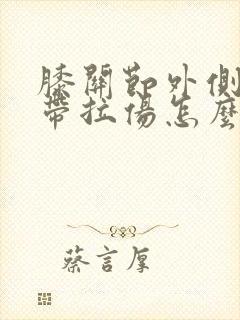 膝關節外側
帶拉傷怎麼
蔡言厚